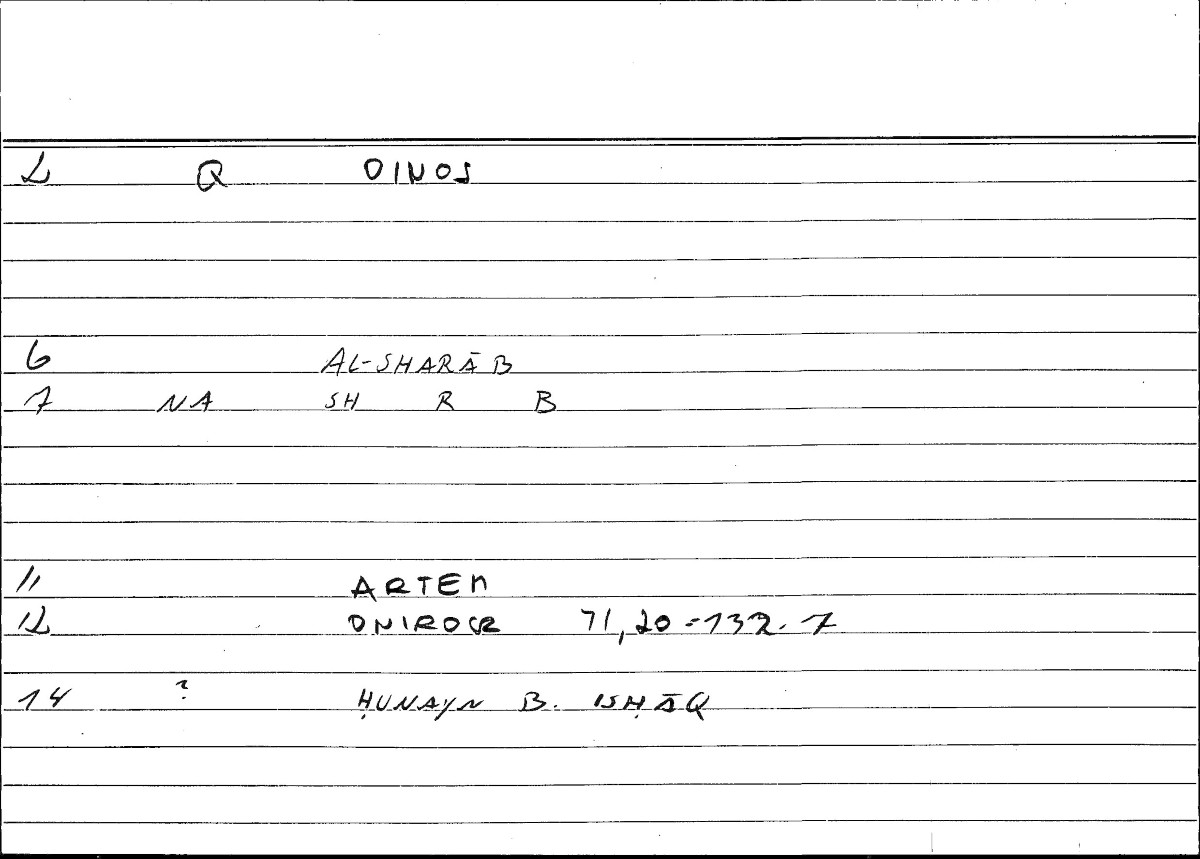 2 Q OINOS
6 AL-SHARĀB
7 NA SH R B
11 ARTEM
12 ONIROCR 71,20=132.7
14 ? ḤUNAYN B. ISḤĀQ